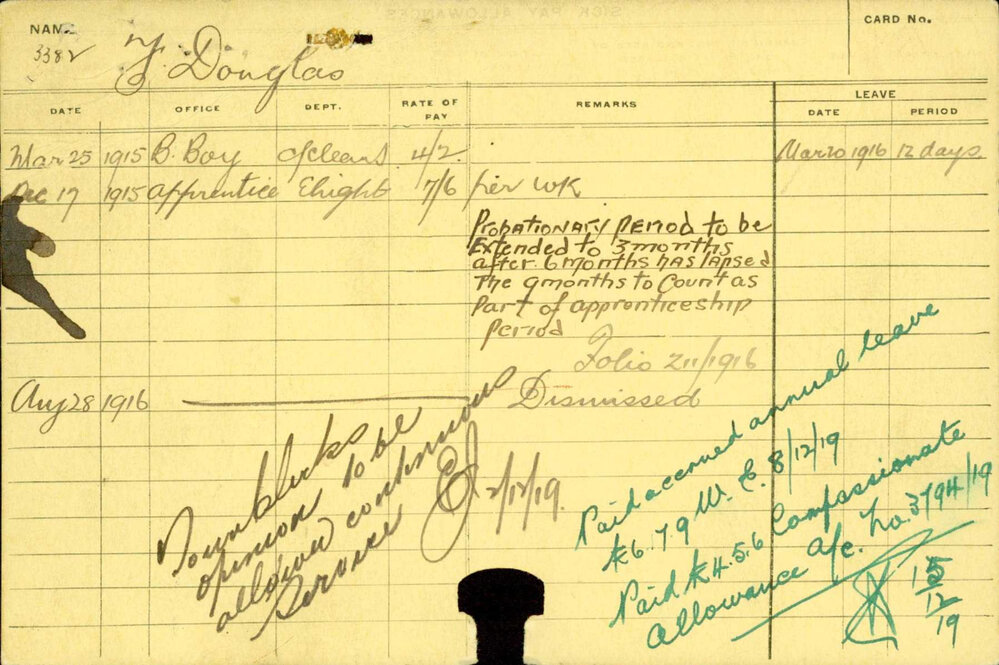 NAME
3382
Y Douglas
CARD No.
DATE OFFICE DEPT. RATE OF PAY REMARKS LEAVE
DATE PERIOD
Mar 25 1915 B. Boy Cleans 4/2 Mar 20 1916 12 days
Dec 17 1915 apprentice Elright 7/6 per wk
Probationary Period to be
Extended to 3 months
after 6 months has lapsed
The 9 months to Count as
Part of apprenticeship
Period
Folio 211/1916
Aug 28 1916 Dismissed
Town Clerks
opinion to be
allowed continuous
Service
2/12/19.
Paid accrued annual leave
£6.7.9 W. E. 8/12/19
Paid £4.5.6 Compassionate
Allowance a/c. No. 3794/19
15
12
19